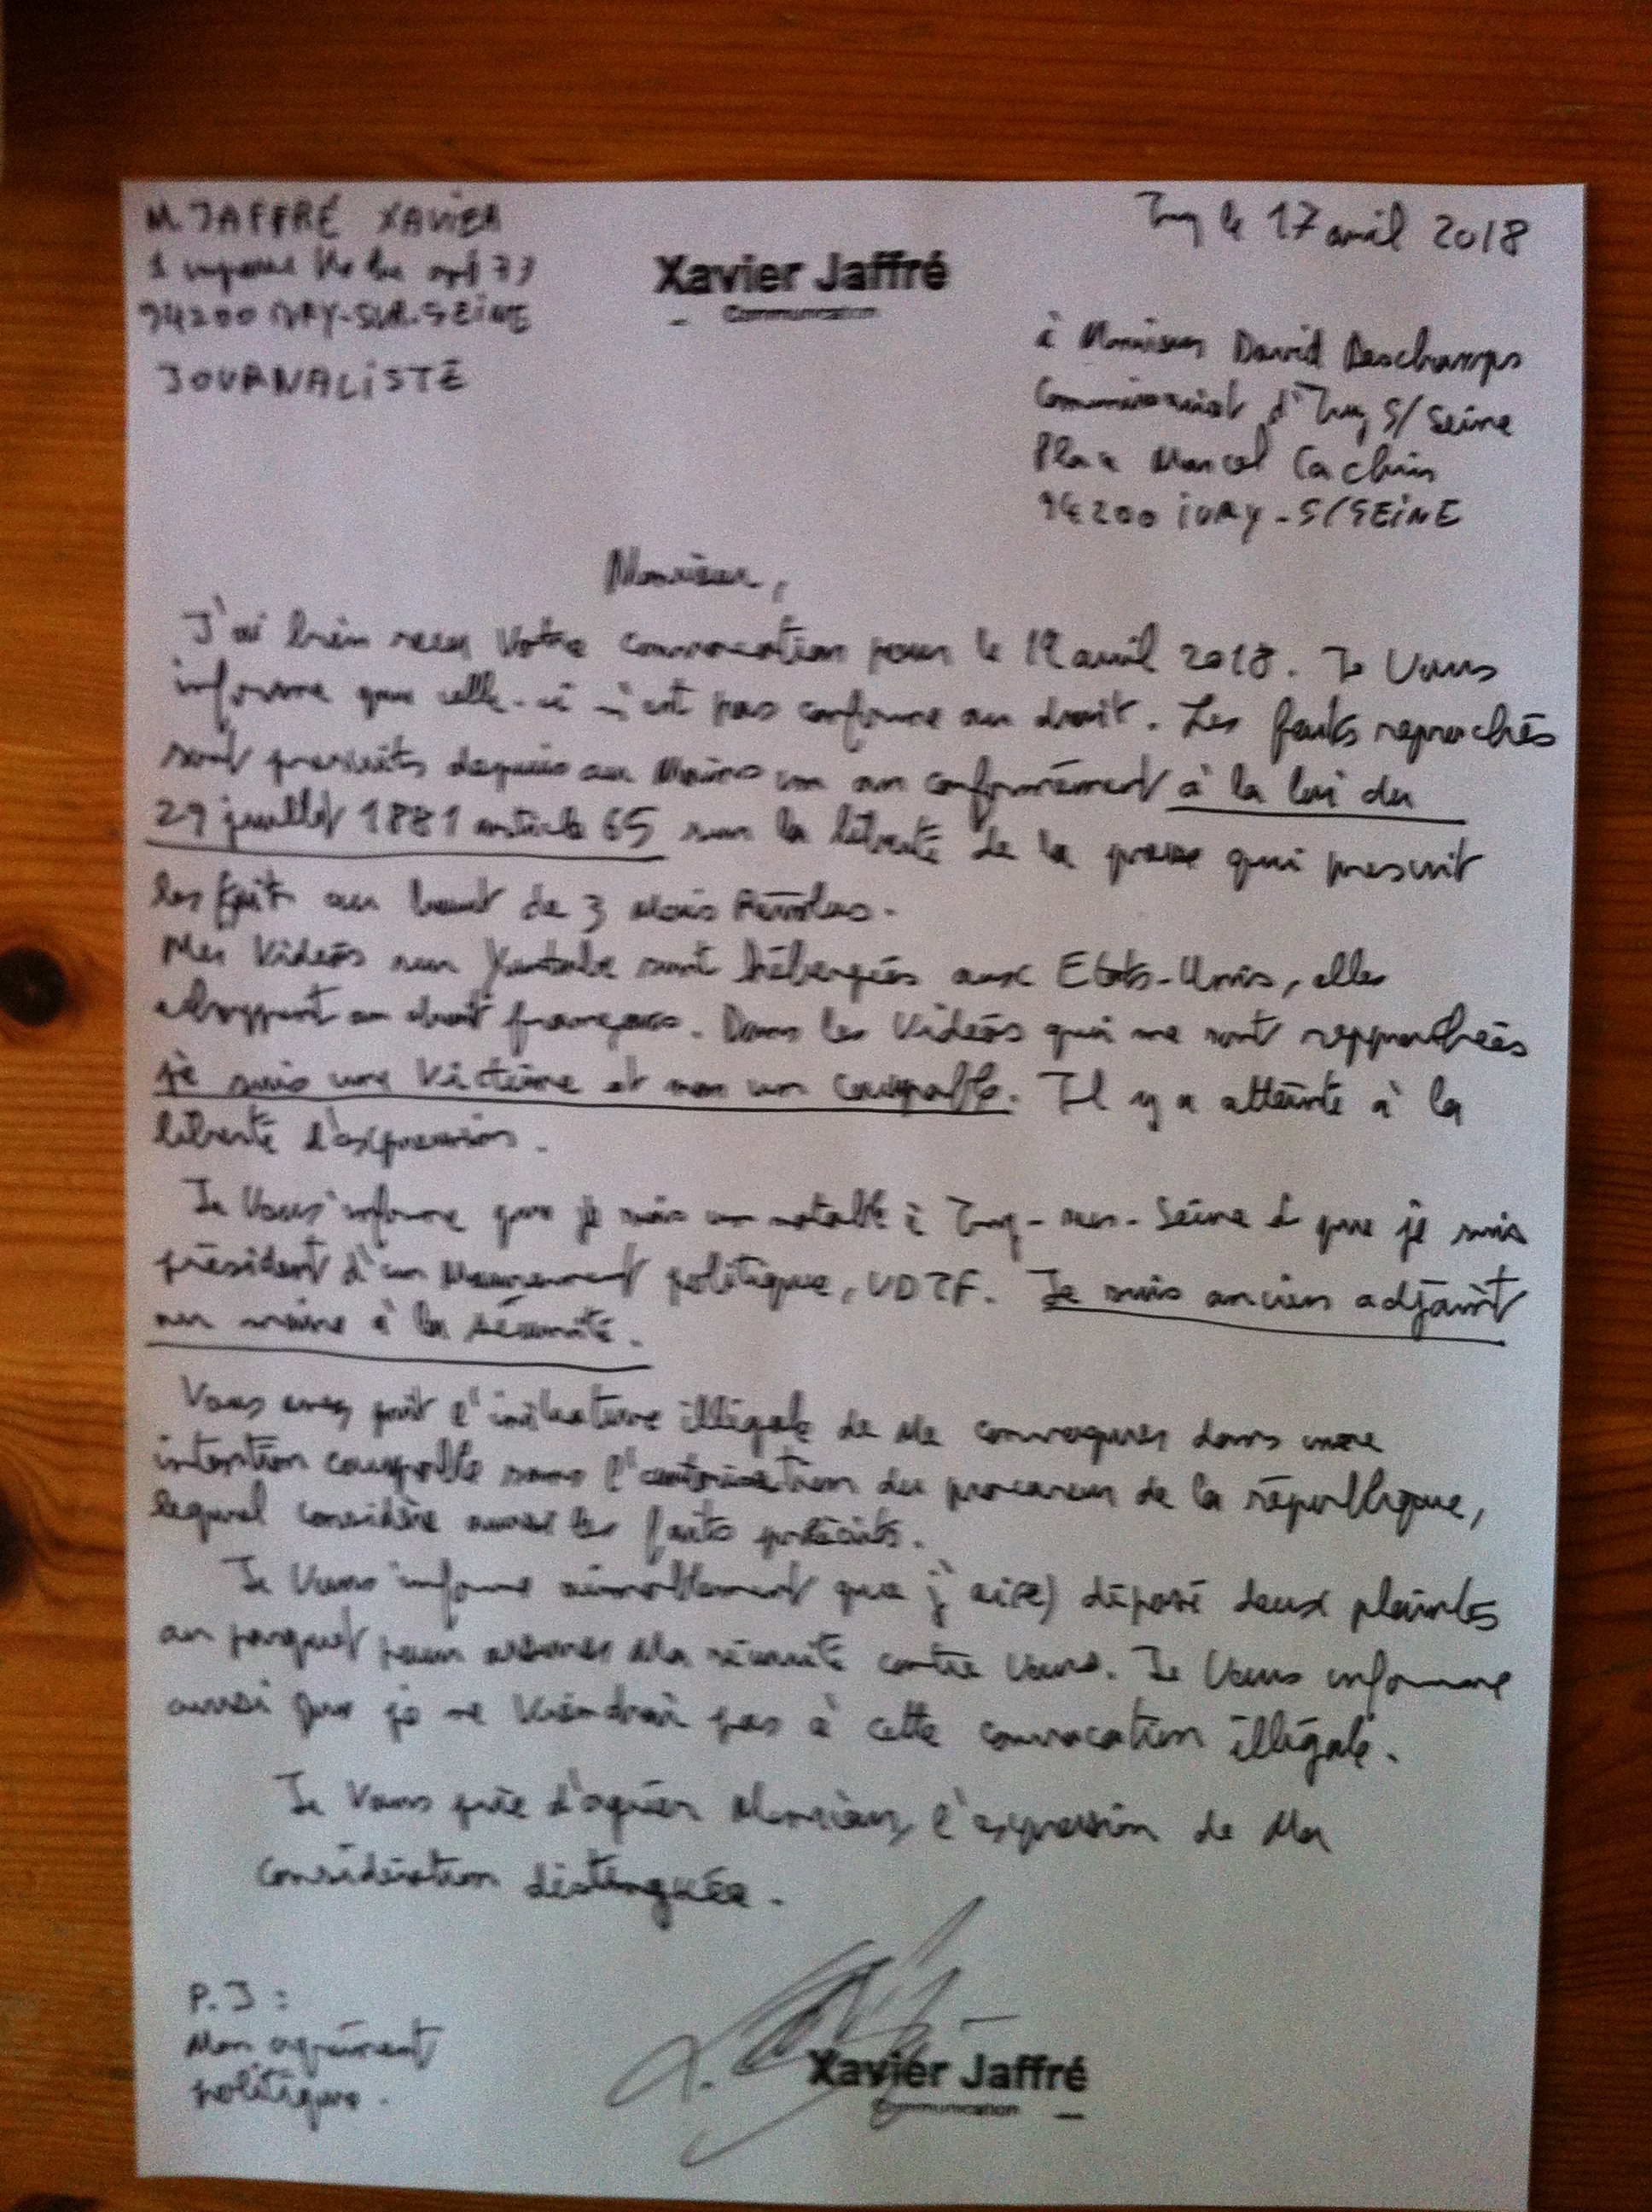 M. JAFFRÉ XAVIER
1 impasse
94200 IVRY-SUR-SEINE
JOURNALISTE
Xavier Jaffré
Communication
Ivry le 17 avril 2018
à Monsieur David Deschamps
Commissariat d'Ivry S/Seine
Place Marcel Cachin
94200 IVRY-S/SEINE
Monsieur,
J'ai bien reçu Votre convocation pour le 19 avril 2018. Je Vous
informe que celle-ci n'est pas conforme au droit. Les faits reprochés
sont prescrits depuis au Moins un an conformément à la loi du
29 juillet 1881 article 65 sur la liberté de la presse qui prescrit
les fait au bout de 3 Mois Révolus.
Mes Vidéos sur Youtube sont hébergées aux Etats-Unis, elles
échappent au droit français. Dans les Vidéos qui me sont repprochées
je suis une Victime et non un coupable. Il y a atteinte à la
liberté d'expression.
Je Vous informe que je suis un notable à Ivry-sur-Seine & que je suis
président d'un Mouvement politique, UDTF. Je suis ancien adjoint
au maire à la sécurité.
Vous avez prit l'initiative illégale de Me convoquer dans une
intention coupable sans l'autorisation du procureur de la république,
lequel considère aussi les faits prescrits.
Je Vous informe également que j'ai(e) déposé deux plaintes
au parquet pour assurer Ma sécurité contre Vous. Je Vous informe
aussi que je ne Viendrai pas à cette convocation illégale.
Je Vous prie d'agréer Monsieur, l'expression de Ma
considération distinguée.
P.J :
Mon agrément
politique.
Xavier Jaffré
Communication